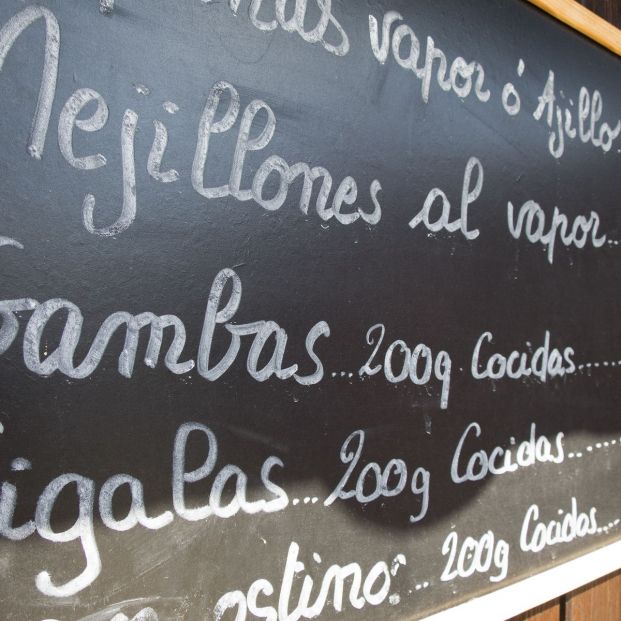 vapor ó Ajillo..
Mejillones al vapor...
Gambas...200g Cocidas......
Cigalas...200g Cocidas......
...200g Cocidas....